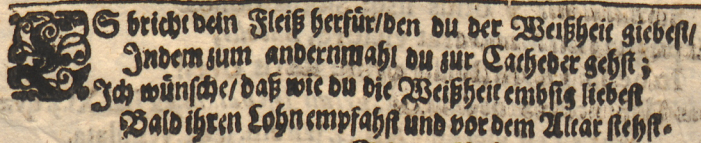 ES bricht dein Fleiß herfür/den du der Weißheit giebest/
Indem zum andernmahl du zur Catheder gehst;
Ich wünsche/daß wie du die Weißheit embsig liebest
Bald ihren Lohn empfahst und vor dem Altar stehst.